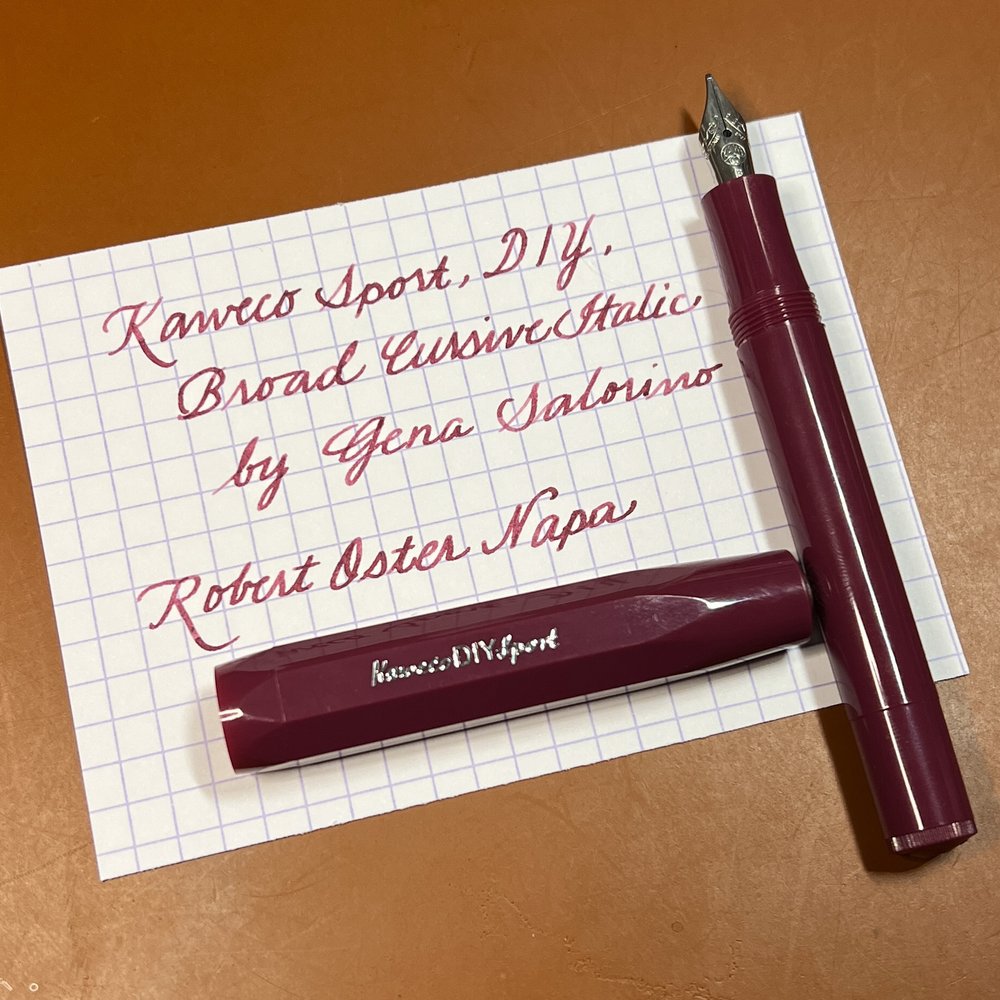 Kaweco Sport, DIY,
Broad Cursive Italic
by Gena Salorino
Robert Oster Napa
KawecoDIYSport